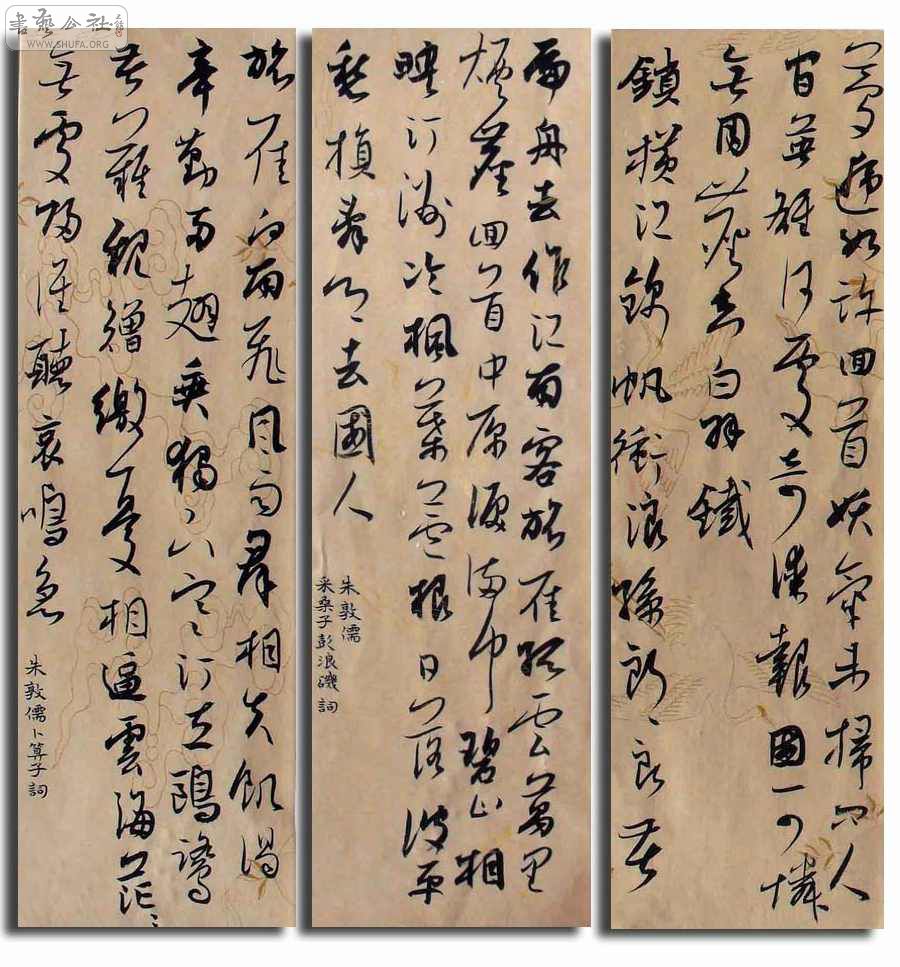 夢遽如許回首妖氛未掃問人
間英雄何處奇謀報國可憐
無用塵昏白羽鐵
鎖橫江錦帆衝浪孫郎良苦
扁舟去作江南客旅雁孤雲萬里
煙塵回首中原淚滿巾碧山相
映汀洲冷楓葉蘆根日落波平
愁損辭鄉去國人
朱敦儒
采桑子彭浪磯詞
旅雁向南飛風雨群相失飢渴
辛勤兩翅垂獨下寒汀立鷗鷺
苦難親繒繳憂相逼雲海茫〻
無處歸誰聽哀鳴急
朱敦儒卜算子詞
書藝公社
WWW.SHUFA.ORG